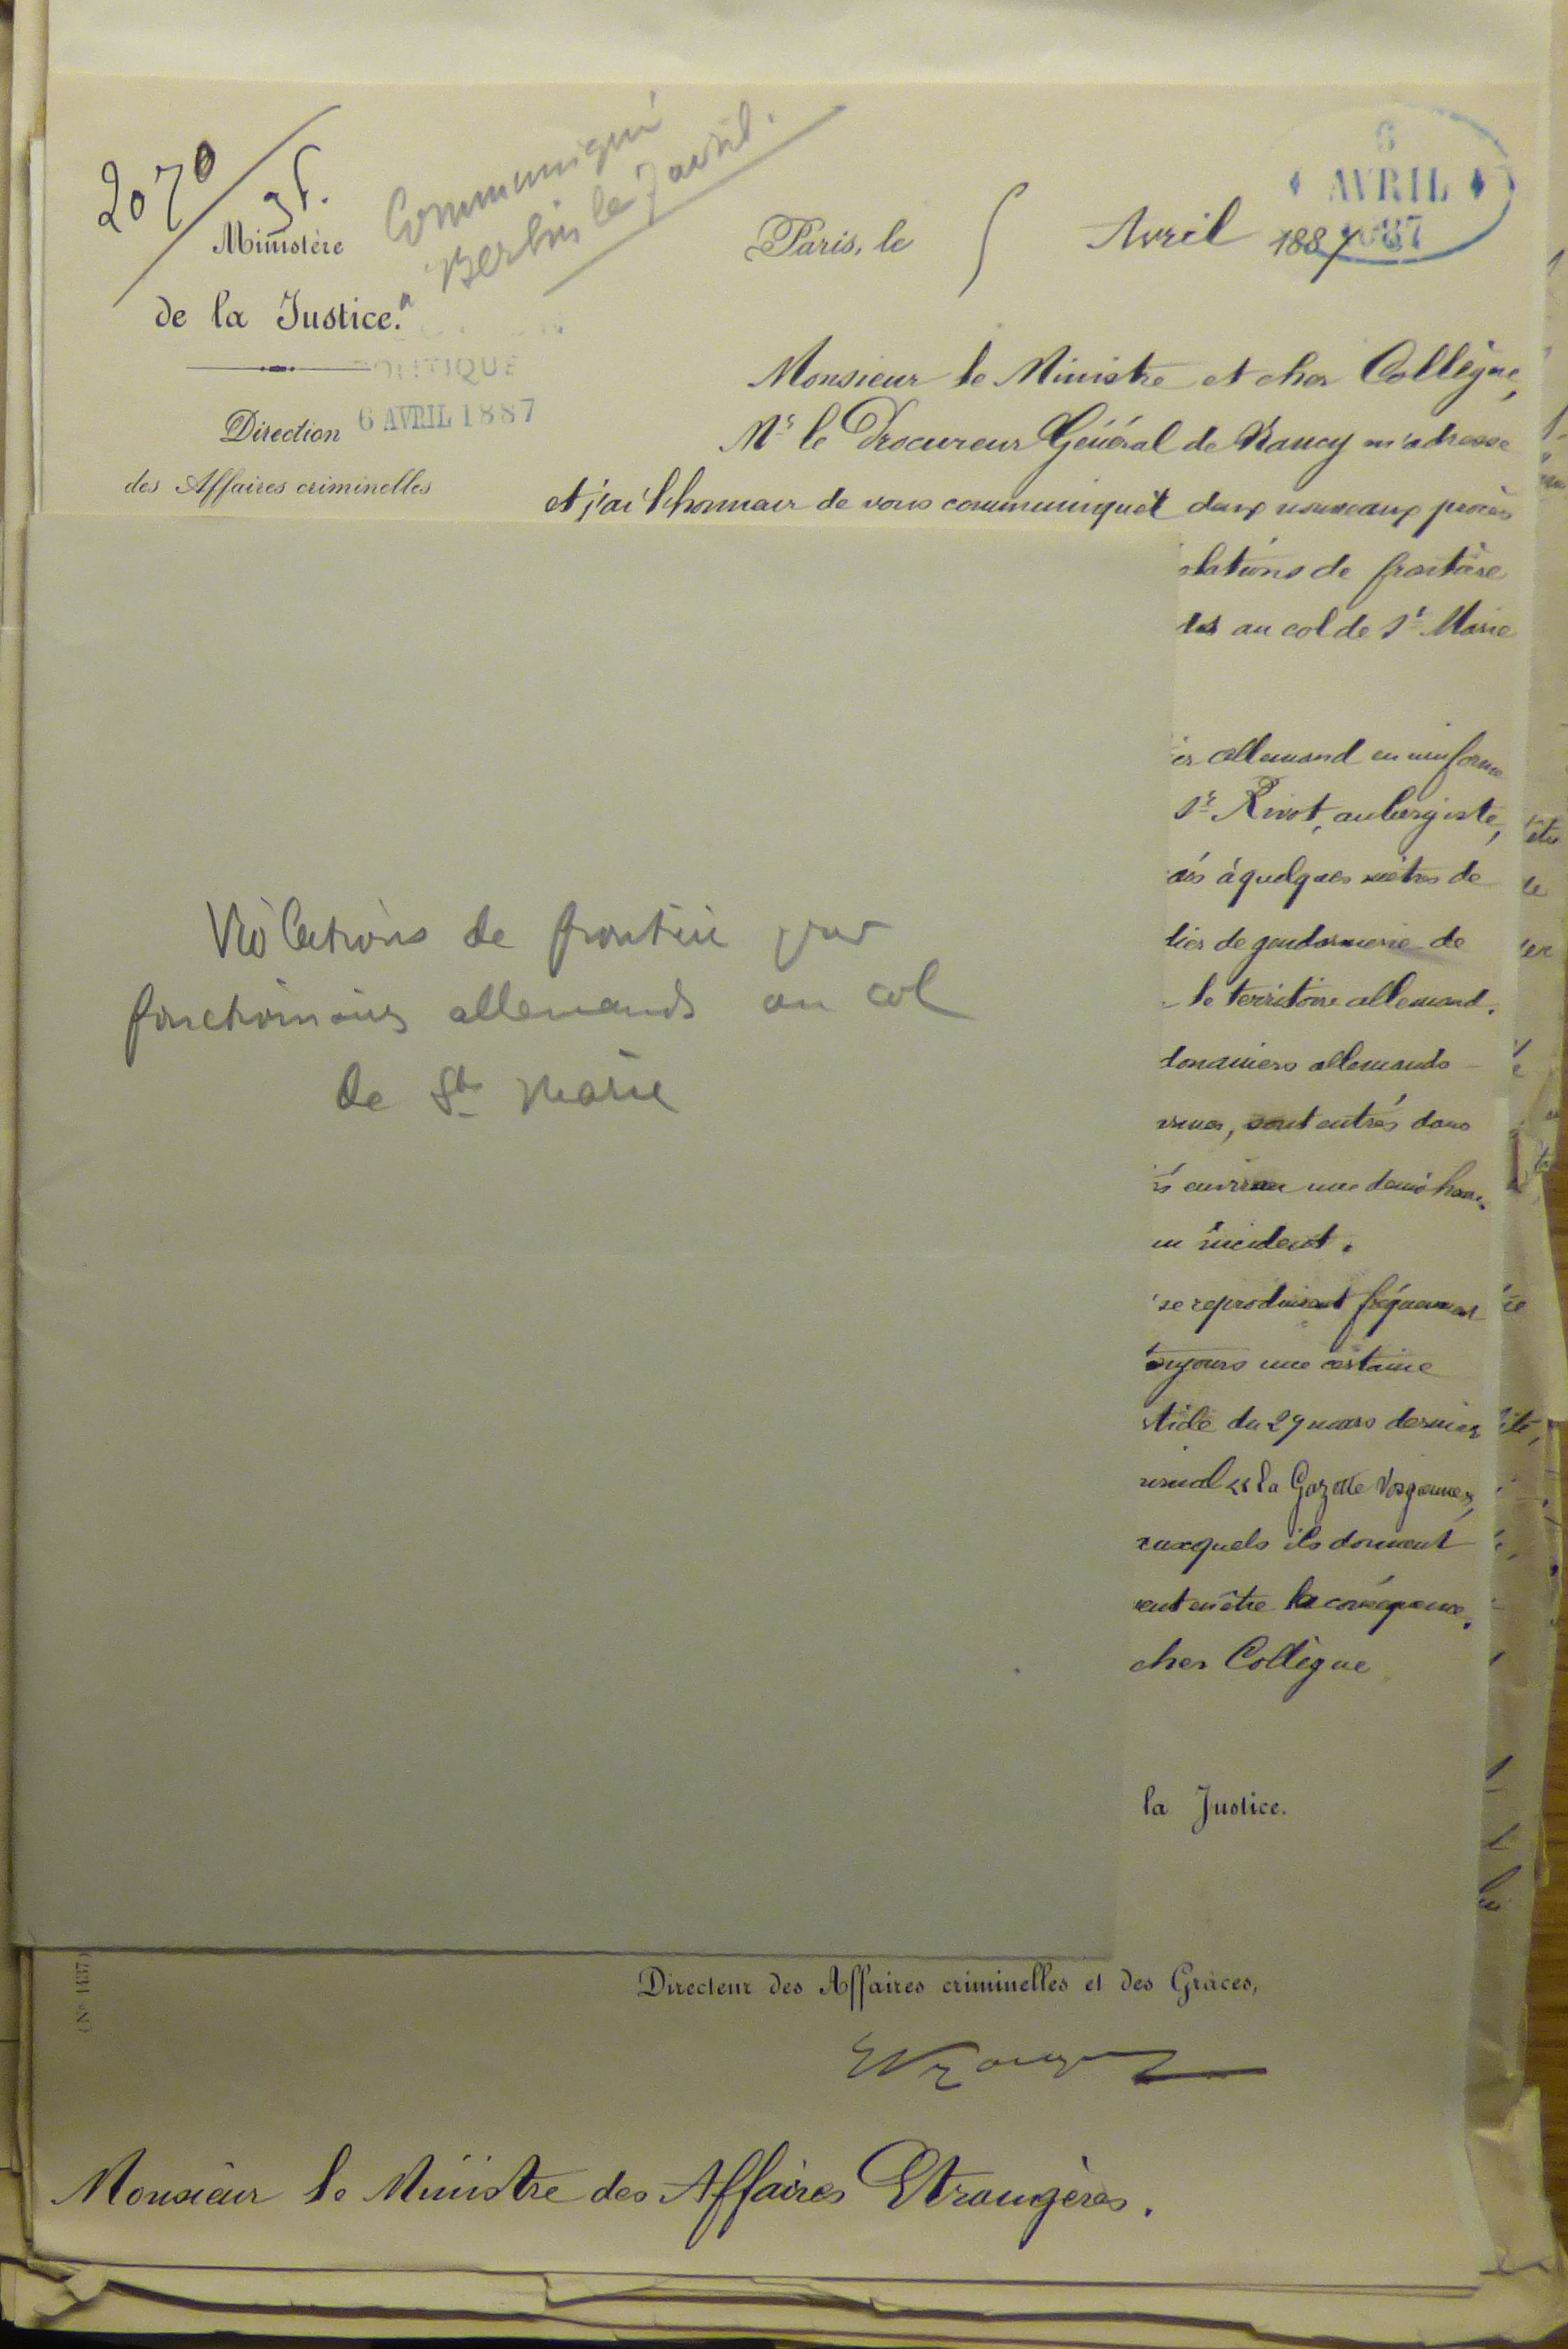 2070
Communiqué
à Berlin le 7 avril.
6
AVRIL
1887
Ministère
de la Justice.
POLITIQUE
6 AVRIL 1887
Direction
des Affaires criminelles
Paris, le 5 Avril 1887
Monsieur le Ministre et cher Collègue,
Mr le Procureur Général de Nancy m'adresse
et j'ai l'honneur de vous communiquer deux nouveaux procès
lations de frontière
au col de Ste Marie
er allemand en uniforme
Sr Rivot, aubergiste,
à quelques mètres de
de gendarmerie de
le territoire allemand.
douaniers allemands
sont entrés dans
environ une demi heure
incident.
se reproduisent fréquemment
toujours une certaine
du 29 mars dernier
"la Gazette Vosgienne",
auxquels ils donnent
en être la conséquence.
cher Collègue
la Justice.
Violations de frontière par
fonctionnaires allemands au col
de Ste Marie
(No 1437)
Directeur des Affaires criminelles et des Grâces,
Monsieur le Ministre des Affaires Etrangères.